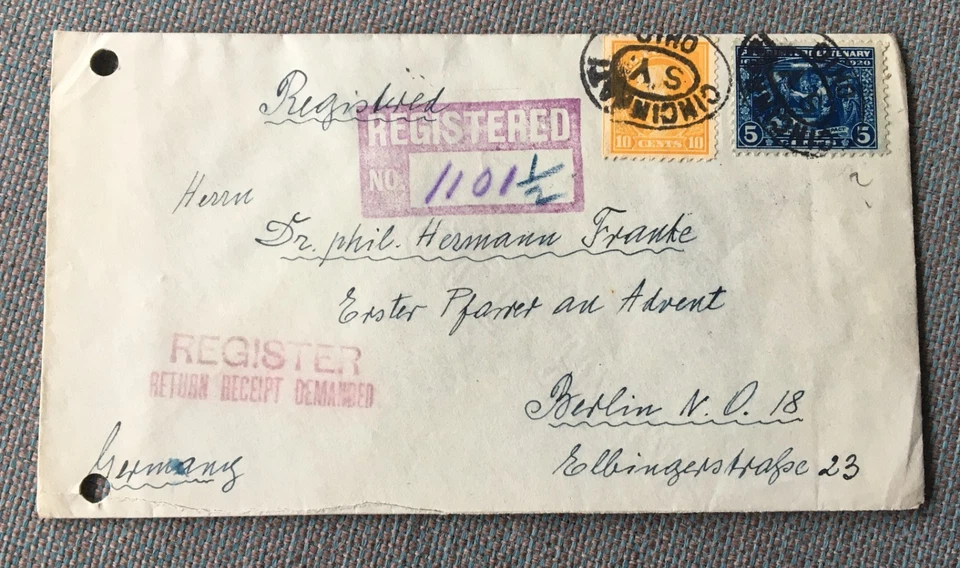 Registered
REGISTERED
NO. 1101 1/2
CINCINNATI
OHIO
S.V.
10 CENTS 10
CENTENARY
1920
5 CENTS 5
Herrn
Dr. phil. Hermann Franke
Erster Pfarrer an Advent
REGISTER
RETURN RECEIPT DEMANDED
Berlin N.O. 18
Germany
Elbingerstraße 23
2